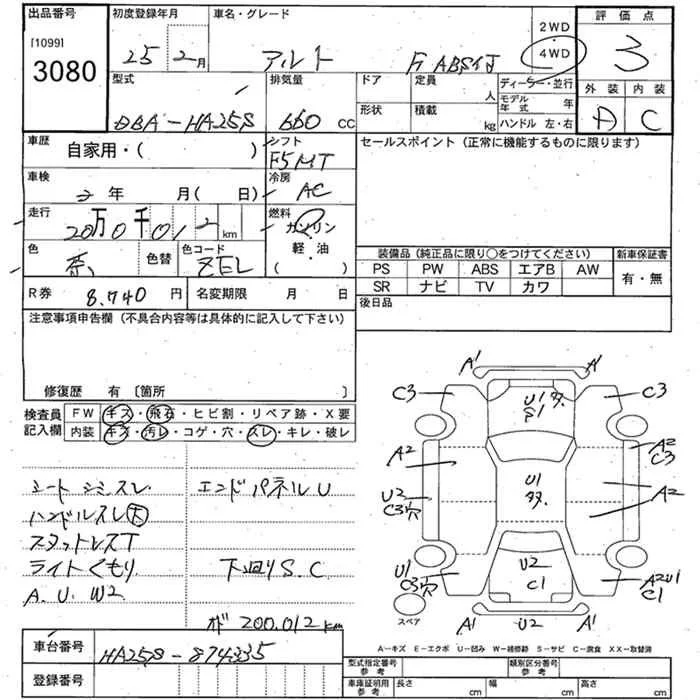 出品番号 初度登録年月 車名・グレード 評価点
[1099] 3080
25 2月 アルト F ABS付
2WD
4WD
3
型式 排気量 ドア 定員 人 ディーラー・並行 外装 内装
DBA-HA25S 660 CC 形状 積載 kg モデル年式 年
ハンドル 左・右 A C
車歴 シフト セールスポイント (正常に機能するものに限ります)
自家用・( ) F5MT
車検 冷房
2年 月(日) AC
走行 燃料
20万0千012 km ガソリン
色 色替 色コード 軽・油
ZEL ( )
装備品 (純正品に限り○をつけてください) 新車保証書
PS PW ABS エアB AW 有・無
SR ナビ TV カワ
R券 8.740 円 名変期限 月 日 後日品
注意事項申告欄 (不具合内容等は具体的に記入して下さい)
修復歴 有 〔箇所 〕
検査員記入欄
FW キズ・飛石・ヒビ割・リペア跡・X要
内装 キズ・汚レ・コゲ・穴・スレ・キレ・破レ
シートシミスレ エンドパネルU
ハンドルスレ
スタットレスT
ライトくもり 下廻りS.C
A.U.W2
200.012 km
A1 A1
C3 U1 タ. S1 C3
A2 A2 C3
U1 タ. A2
U2 C3穴
U1 C3穴 U2 C1 A2U1 C1
スペア A1 U2 A1
A-キズ E-エクボ U-凹み W-補修跡 S-サビ C-腐食 XX-取替済
車台番号 HA25S-874335
登録番号
型式指定番号 参考 類別区分番号 参考
車庫証明用 参考 長さ cm 幅 cm 高さ cm